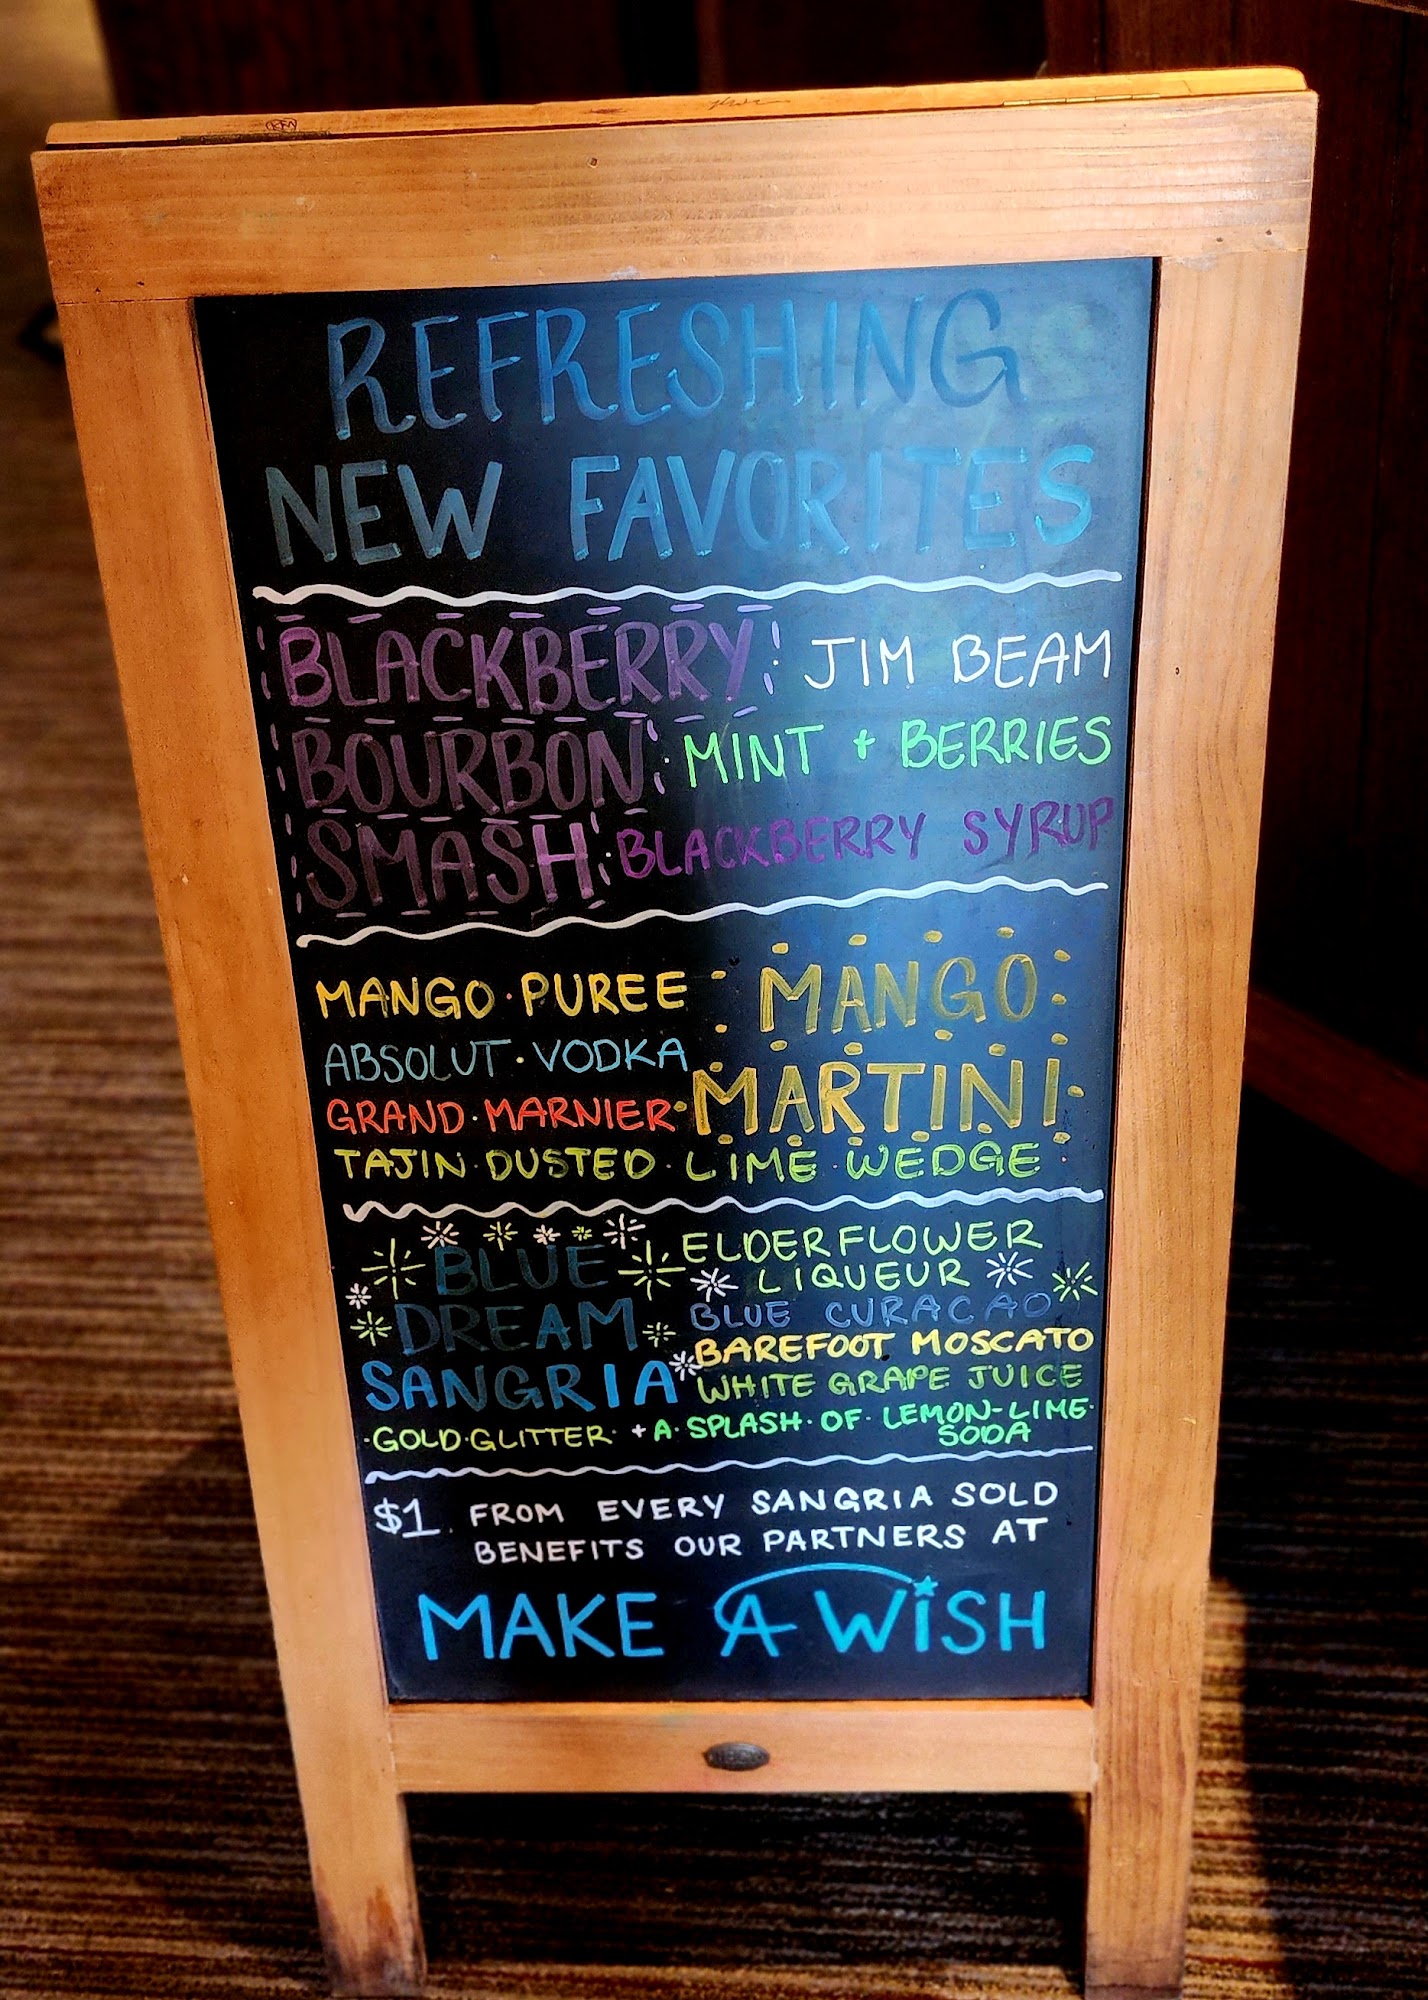 REFRESHING
NEW FAVORITES
BLACKBERRY
BOURBON
SMASH
JIM BEAM
MINT + BERRIES
BLACKBERRY SYRUP
MANGO PUREE
ABSOLUT VODKA
GRAND MARNIER
TAJIN DUSTED LIME WEDGE
MANGO
MARTINI
BLUE
DREAM
SANGRIA
ELDERFLOWER
LIQUEUR
BLUE CURACAO
BAREFOOT MOSCATO
WHITE GRAPE JUICE
GOLD GLITTER + A SPLASH OF LEMON-LIME
SODA
$1 FROM EVERY SANGRIA SOLD
BENEFITS OUR PARTNERS AT
MAKE A WISH